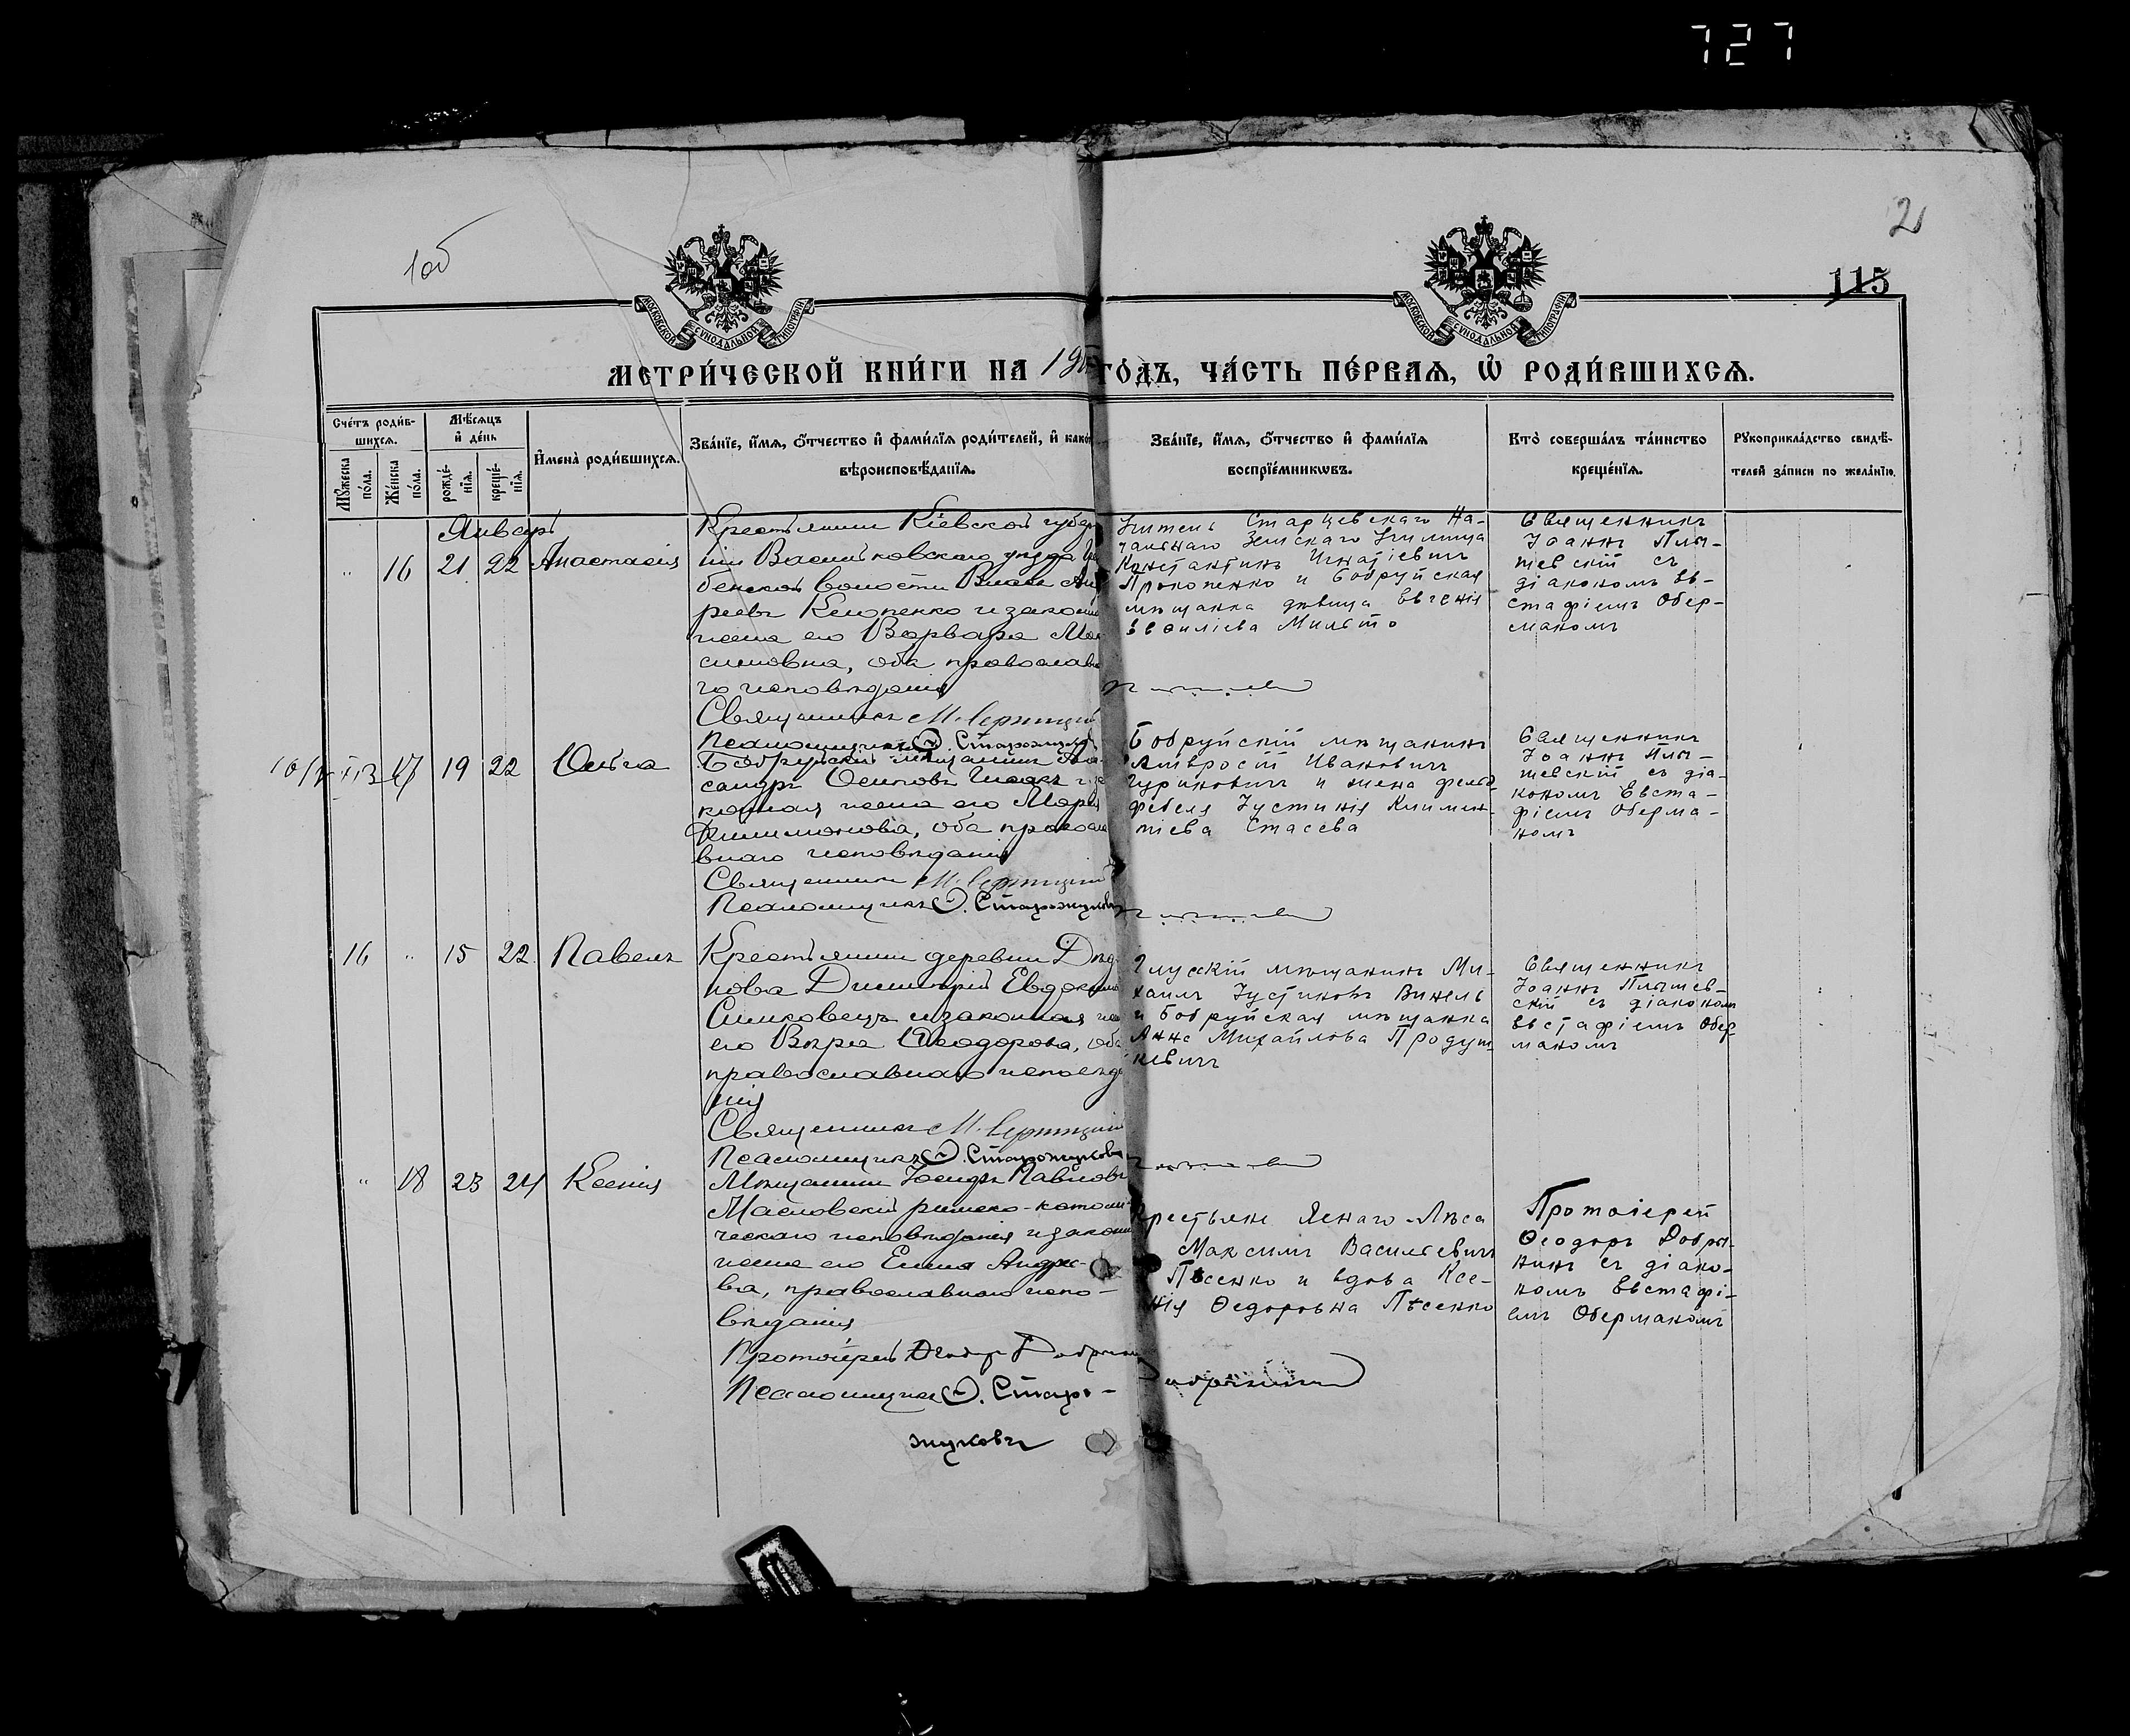 727
2
1об
115
МОСКОВСКОЙ СѴНОДАЛЬНОЙ ТИПОГРАФІИ
МОСКОВСКОЙ СѴНОДАЛЬНОЙ ТИПОГРАФІИ
МЕТРИ́ЧЕСКОЙ КНИ́ГИ НА 19 ГО́ДЪ, ЧА́СТЬ ПЕ́РВАѦ, Ѡ҆ РОДИ́ВШИХСѦ.
Сче́тъ роди́в-
шихсѧ.
Мꙋ́жеска по́ла.
Же́нска по́ла.
Мѣ́сѧцъ
и҆ де́нь
рожде́-
нїѧ.
креще́-
нїѧ.
И҆мена̀ роди́вшихсѧ.
Зва́нїе, и҆́мѧ, ѻ҆́тчество и҆ фами́лїѧ роди́телей, и҆ како́
вѣроисповѣ́данїѧ.
Зва́нїе, и҆́мѧ, ѻ҆́тчество и҆ фами́лїѧ
воспрїе́мникѡвъ.
Кто̀ соверша́лъ та́инство
креще́нїѧ.
Рꙋкоприкла́дство свидѣ́-
телей за́писи по жела́нїю.
Январь
" 16 21 22 Анастасія
Крестьянинъ Кіевской губер
ніи Васильковскаго уѣзда
бенской волости Анд
реевъ и законн
жена его Варвара Мак
симовна, оба православна
го исповѣданія
Священникъ М.
Псаломщикъ Ѳ. Старожуковъ
Учитель Старцевскаго На-
чальнаго Земскаго Училища
Константинъ Игнатіевичъ
Прокопенко и Бобруйская
мѣщанка дѣвица Евгенія
Василіева
Священникъ
Іоаннъ Плы-
шевскій съ
діакономъ Ев-
стафіемъ Обер-
маномъ
17 19 22 Ольга
Бобруйскій мѣщанинъ
сандръ Осиповъ
конная жена его Марія
Филимонова, оба правосла
внаго исповѣданія
Священникъ М.
Псаломщикъ Ѳ. Старожуковъ
Бобруйскій мѣщанинъ
Амвросій Ивановичъ
Гуриновичъ и жена фельд
фебеля Іустинія Климен-
тіева Стасева
Священникъ
Іоаннъ Плы-
шевскій съ діа-
кономъ Евста-
фіемъ Оберма-
номъ
16 " 15 22 Павелъ
Крестьянинъ деревни Дѣд
нова Димитрій Евдокимо
Симковецъ и законная же
его Вѣра Ѳеодорова, оба
православнаго исповѣда
нія
Священникъ М.
Псаломщикъ Ѳ. Старожуковъ
Глусскій мѣщанинъ Ми-
хаилъ Іустиновъ Винель
и Бобруйская мѣщанка
Анна Михайлова Продуш-
кевичъ
Священникъ
Іоаннъ Плышев-
скій съ діакономъ
Евстафіемъ Обер-
маномъ
" 18 23 24 Ксенія
Мѣщанинъ Іосифъ Павловъ
Масловскій римско-католи-
ческаго исповѣданія и законн
жена его Елена Андрее-
ва, православнаго испо-
вѣданія
Протоіерей Ѳеодоръ Добрынин
Псаломщикъ Ѳ. Старо-
жуковъ
Крестьяне Яснаго-Лѣса
Максимъ Васильевичъ
Пѣсенко и вдова Ксе-
нія Ѳедоровна Пѣсенко
Протоіерей
Ѳеодоръ Добры-
нинъ съ діако-
номъ Евстафі-
емъ Оберманомъ